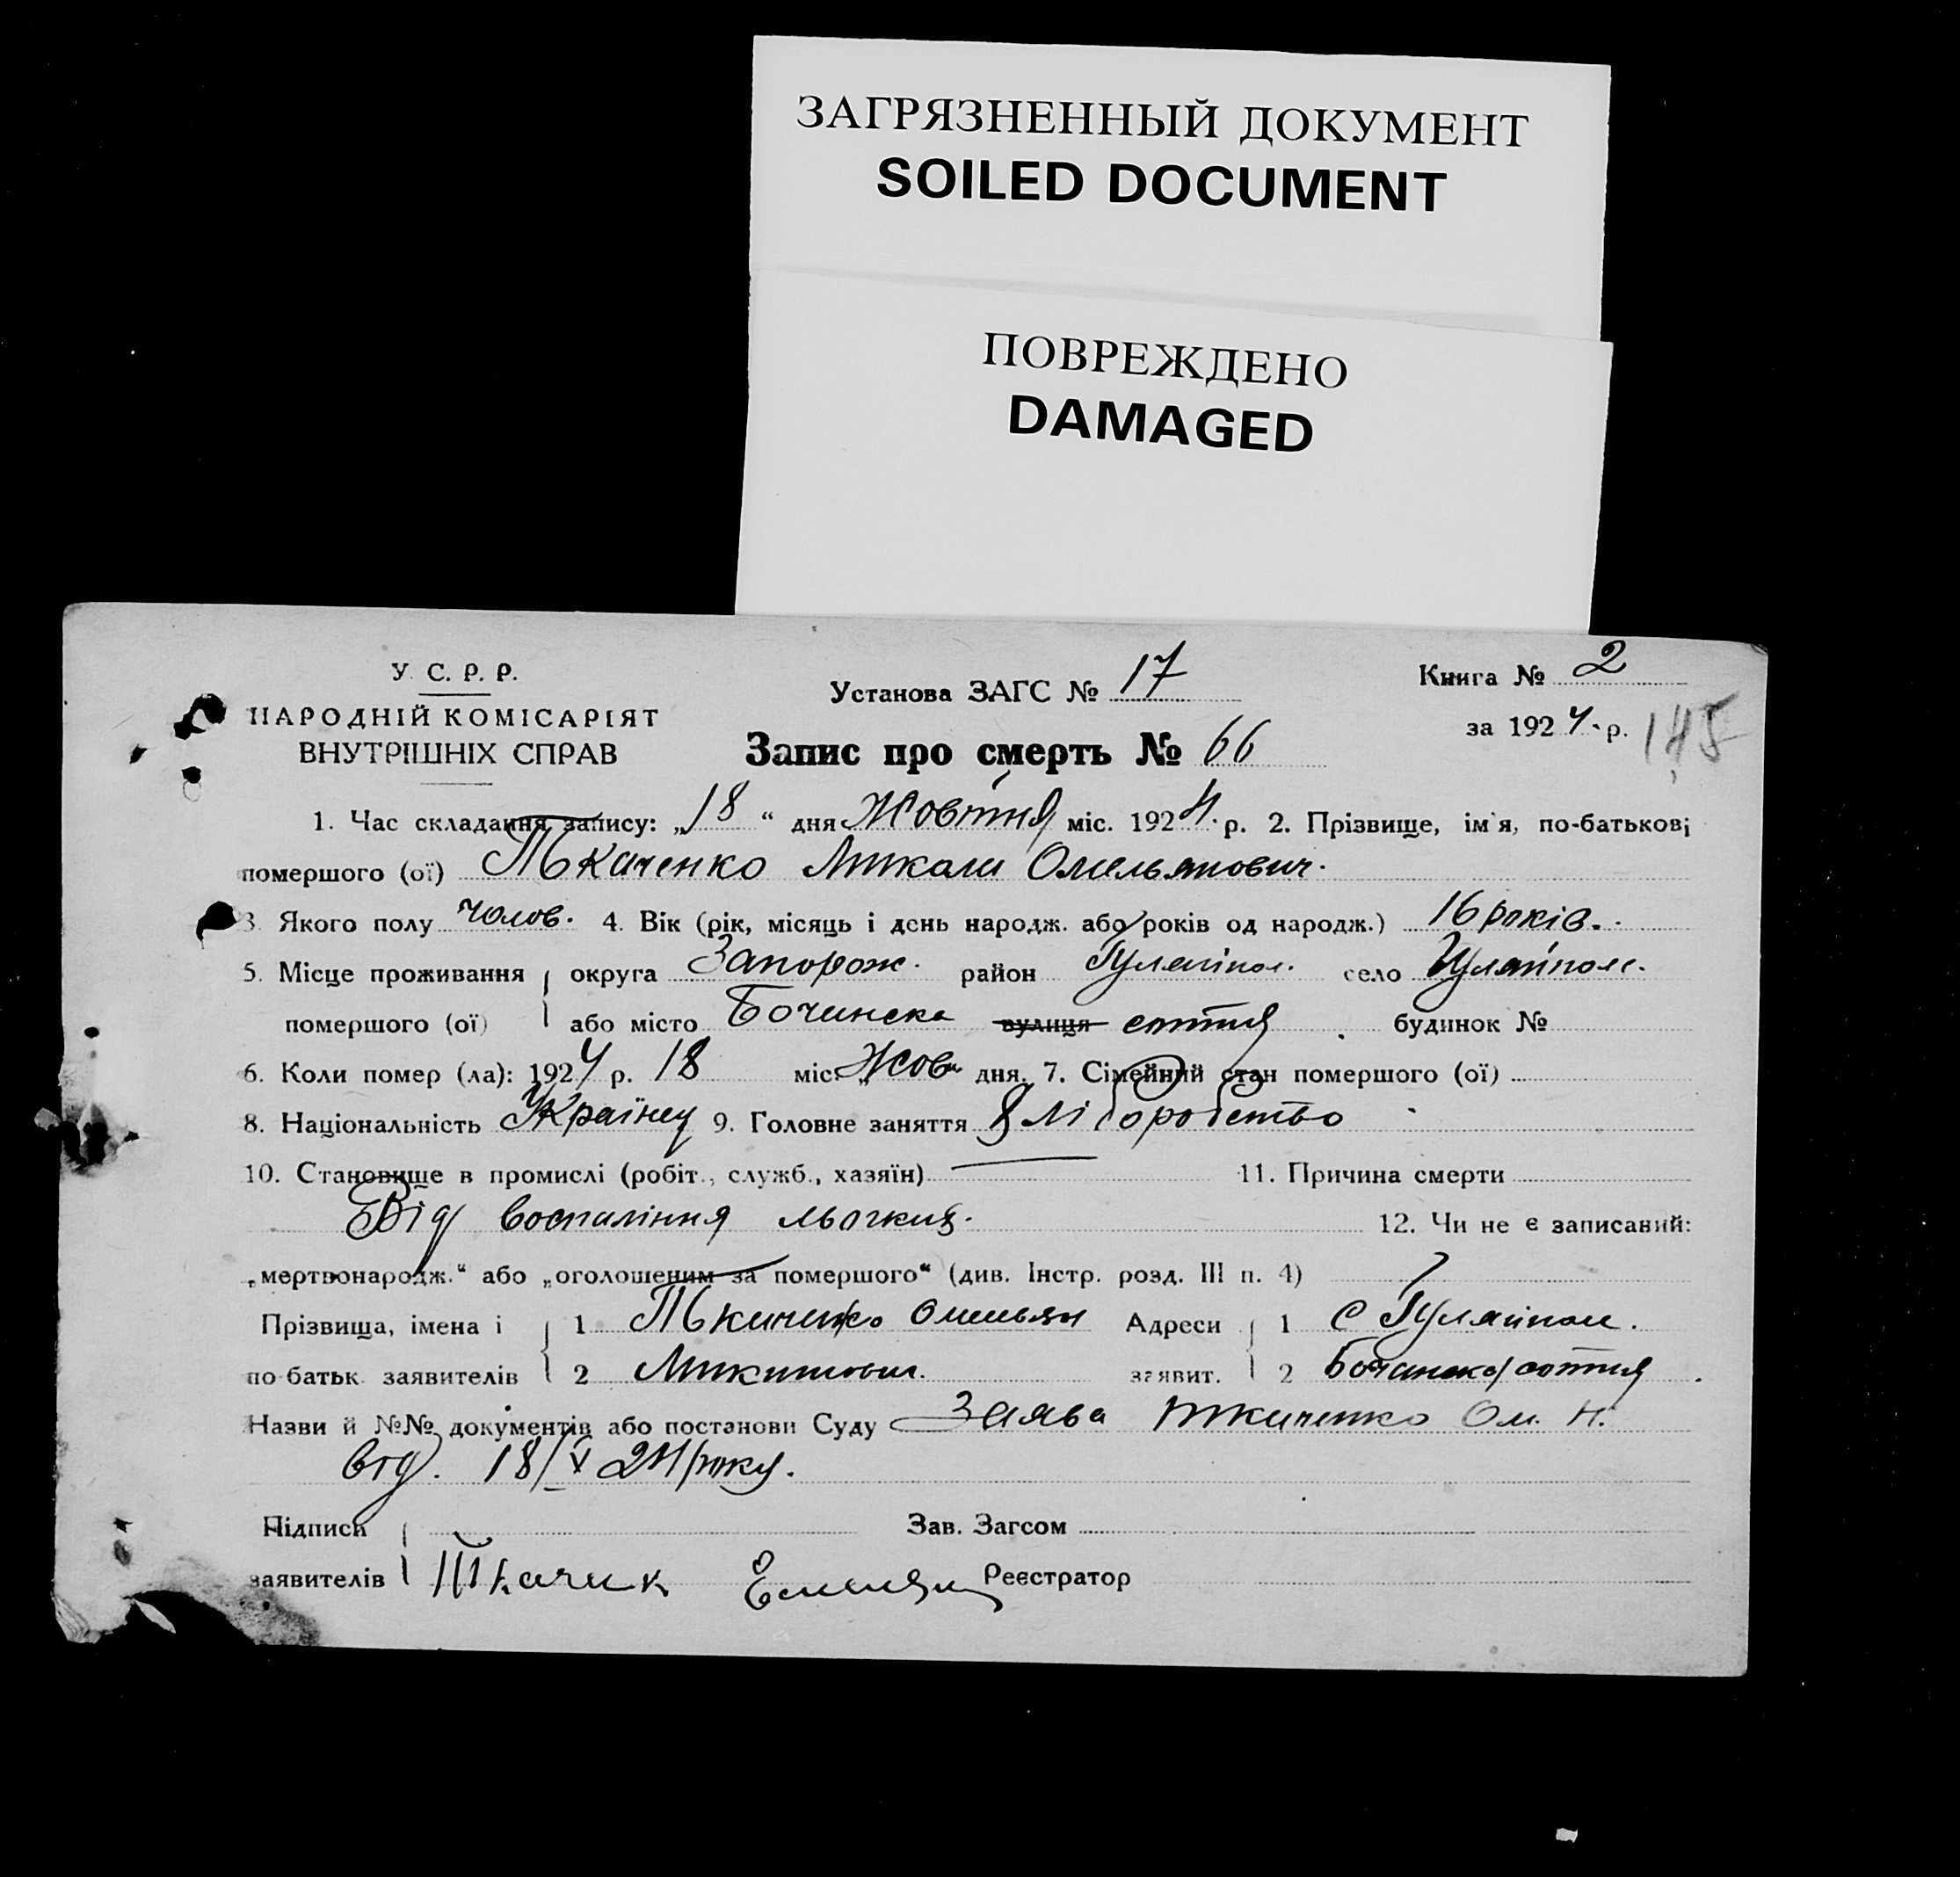 ЗАГРЯЗНЕННЫЙ ДОКУМЕНТ
SOILED DOCUMENT
ПОВРЕЖДЕНО
DAMAGED
У. С. Р. Р.
НАРОДНІЙ КОМІСАРІЯТ
ВНУТРІШНІХ СПРАВ
Установа ЗАГС № 17
Книга № 2
за 1924 р. 145
Запис про смерть № 66
1. Час складання запису: „18“ дня Жовтня міс. 1924 р. 2. Прізвище, ім'я, по-батькові
помершого (ої) Ткаченко Микола Омельянович.
3. Якого полу чолов. 4. Вік (рік, місяць і день народж. або років од народж.) 16 років.
5. Місце проживання округа Запорож. район Гуляйпол. село Гуляйполе.
помершого (ої) або місто Бочанска вулиця сотня будинок №
6. Коли помер (ла): 1924 р. 18 міс. „Жов“ дня. 7. Сімейний стан помершого (ої)
8. Національність Українец 9. Головне заняття Хліборобство
10. Становище в промислі (робіт., служб., хазяїн) 11. Причина смерти
Від воспаління льогких.
12. Чи не є записаний:
„мертвонародж.“ або „оголошеним за помершого“ (див. Інстр. розд. III п. 4)
Прізвища, імена і 1 Ткаченко Омельян Адреси 1 с Гуляйполе.
по батьк. заявителів 2 Микитович. заявит. 2 Бочанска сотня
Назви й №№ документів або постанови Суду Заява Ткаченко Ом. Н.
від. 18/X 24 року.
Підписи Зав. Загсом
заявителів Ткачик Емелян Реєстратор